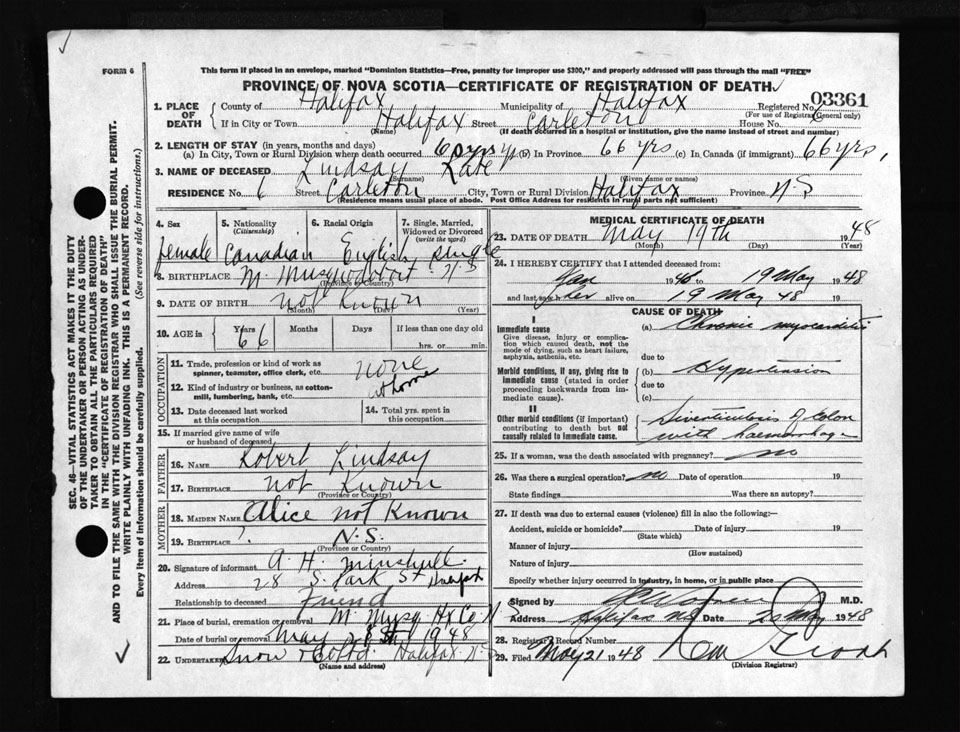 FORM 6
This form if placed in an envelope, marked "Dominion Statistics—Free, penalty for improper use $300," and properly addressed will pass through the mail "FREE"
PROVINCE OF NOVA SCOTIA—CERTIFICATE OF REGISTRATION OF DEATH
SEC. 46—VITAL STATISTICS ACT MAKES IT THE DUTY
OF THE UNDERTAKER OR PERSON ACTING AS UNDER-
TAKER TO OBTAIN ALL THE PARTICULARS REQUIRED
IN THE "CERTIFICATE OF REGISTRATION OF DEATH"
AND TO FILE THE SAME WITH THE DIVISION REGISTRAR WHO SHALL ISSUE THE BURIAL PERMIT.
WRITE PLAINLY WITH UNFADING INK. THIS IS A PERMANENT RECORD.
Every item of Information should be carefully supplied. (See reverse side for instructions.)
1. PLACE OF DEATH
County of Halifax Municipality of Halifax Registered No. 03361
(For use of Registrar General only)
If in City or Town Halifax Street Carleton House No. 6
(Name) (If death occurred in a hospital or institution, give the name instead of street and number)
2. LENGTH OF STAY (in years, months and days)
(a) In City, Town or Rural Division where death occurred 60 yrs (b) In Province 66 yrs (c) In Canada (if immigrant) 66 yrs.
3. NAME OF DECEASED Lindsay Kate
(Surname) (Given name or names)
RESIDENCE No. 6 Street Carleton City, Town or Rural Division Halifax Province N.S
(Residence means usual place of abode. Post Office Address for residents in rural parts not sufficient)
4. Sex 5. Nationality (Citizenship) 6. Racial Origin 7. Single, Married, Widowed or Divorced (write the word)
female Canadian English single
8. BIRTHPLACE M. Musquodoboit N.S
(Province or Country)
9. DATE OF BIRTH not Known
(Month) (Day) (Year)
10. AGE in Years 66 Months Days If less than one day old
hrs. or min.
OCCUPATION
11. Trade, profession or kind of work as spinner, teamster, office clerk, etc. none
12. Kind of industry or business, as cotton-mill, lumbering, bank, etc. at home
13. Date deceased last worked at this occupation
14. Total yrs. spent in this occupation
15. If married give name of wife or husband of deceased
FATHER
16. NAME Robert Lindsay
17. BIRTHPLACE not Known
(Province or Country)
MOTHER
18. MAIDEN NAME Alice not Known
19. BIRTHPLACE N.S.
(Province or Country)
20. Signature of informant A. H. Minshull
Address 28 S. Park St Halifax
Relationship to deceased Friend
21. Place of burial, cremation or removal M Musq Hx Co N.S
Date of burial or removal May 1948
22. UNDERTAKER Snow & Co Ltd. Halifax N.S
(Name and address)
MEDICAL CERTIFICATE OF DEATH
23. DATE OF DEATH May 19th 1948
(Month) (Day)
24. I HEREBY CERTIFY that I attended deceased from:
Jan 1946 to 19 May 1948
and last saw her alive on 19 May 48 19
CAUSE OF DEATH
I
Immediate cause
Give disease, injury or complication which caused death, not the mode of dying, such as heart failure, asphyxia, asthenia, etc.
(a) Chronic myocarditis
due to
Morbid conditions, if any, giving rise to immediate cause (stated in order proceeding backwards from immediate cause).
(b) Hypertension
due to
(c)
II
Other morbid conditions (if important) contributing to death but not causally related to immediate cause.
Diverticulosis of Colon
with haemorrhage
25. If a woman, was the death associated with pregnancy? no
26. Was there a surgical operation? no Date of operation 19
State findings Was there an autopsy?
27. If death was due to external causes (violence) fill in also the following:—
Accident, suicide or homicide? Date of injury 19
(State which)
Manner of injury
(How sustained)
Nature of injury
Specify whether injury occurred in industry, in home, or in public place
Signed by M.D.
Address Halifax NS Date 20 May 1948
28. Registrar's Record Number
29. Filed May 21 1948
(Division Registrar)